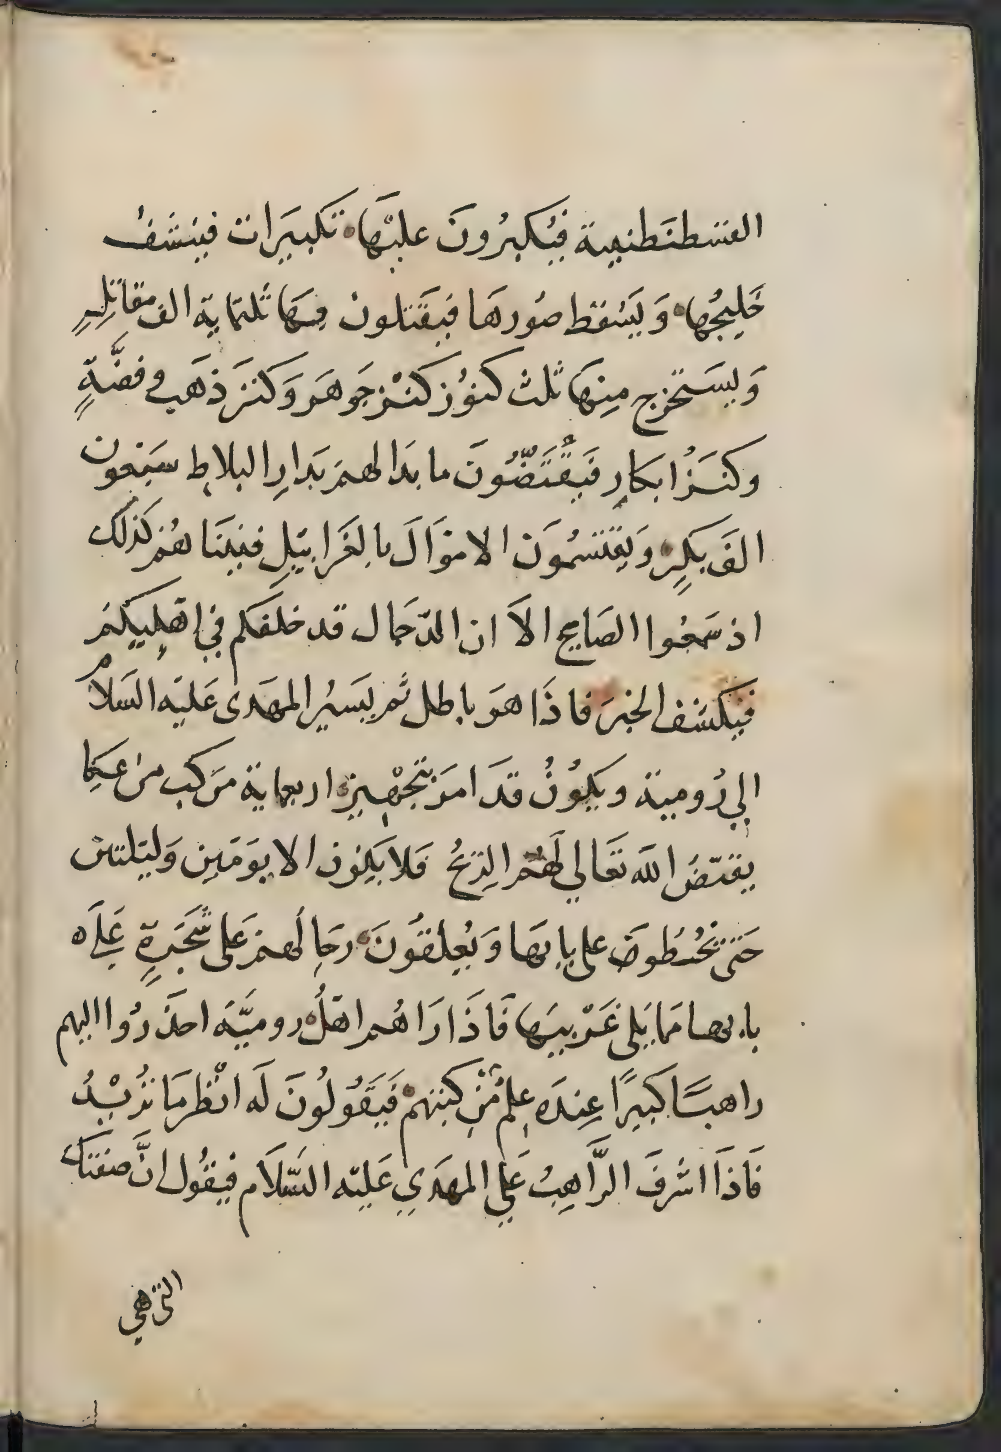 القسطنطنيية فَيُكبرُونَ عليَها تكبيَرات فينشفُ
خَليجُها وَيَسْقط صُورهَا فيَقتلون فيهَا ثلثماية الف مقاتلٍ
وَيسَتخرج مِنهَا ثلث كنوُز كنْز جَوهَر وَكنز ذهَب وفضَّةٍ
وكنَز ابكارٍ فيَقُتَضّوُنَ ما بدَا لهم بَدارِ البلاط سَبعون
الفَ بكرٍ وَيقتسموُن الاموَالَ بالغَرابيْل فبينَا هُم كذلك
اذ سَمعُوا الصَايح الاَ ان الدّجال قد خلفكم في اهليكم
فيَكشف الخبرَ فاذَا هوَ باطل ثم يسَيُر المهدَى عَليَه السَلام
الي رُومية ويكوُنُ قدَ امَر بتجْهيز اربعماية مَركب من عكا
يقتضُ اللهَ تعَالي لهُم الريحُ فلا يكون الا يوَمَين وَليَلتين
حَتىَ يحُطوَن على بابهَا وَيُعلِقوُنَ رحَالهُم عَلى شجَرةٍ عَلَى
بابها ممَا يَلى غَرْبيهَا فَاذَا رَاهُم اهَلُ روميَّة احدَرُوا اليهم
راهبًا كَبيَرًا عِندَه عِلم مْن كتبهم فَيقَوُلُونَ لَه انْظر مَا تُريْدُ
فَاذَا اشرفَ الرَّاهبُ عَلي المهدَي عَليَه السَّلاَم فيقُول انَّ صفتك
التي هي